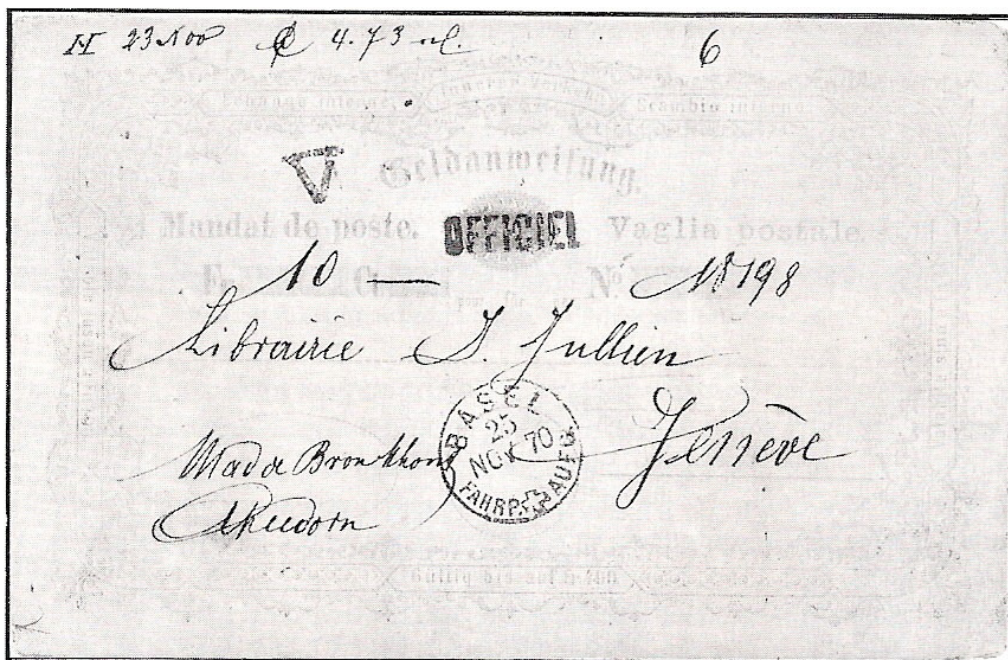 23 Nov 4.73 6
Échange interne Innerer Verkehr Scambio interno
Geldanweisung.
Mandat de poste. OFFICIEL Vaglia postale
10 — No. 198
Librairie J. Jullien
Genève
BASEL
25
NOV 70
FAHRP. AUFG
Mad de Bronkhorst
Gültig bis auf